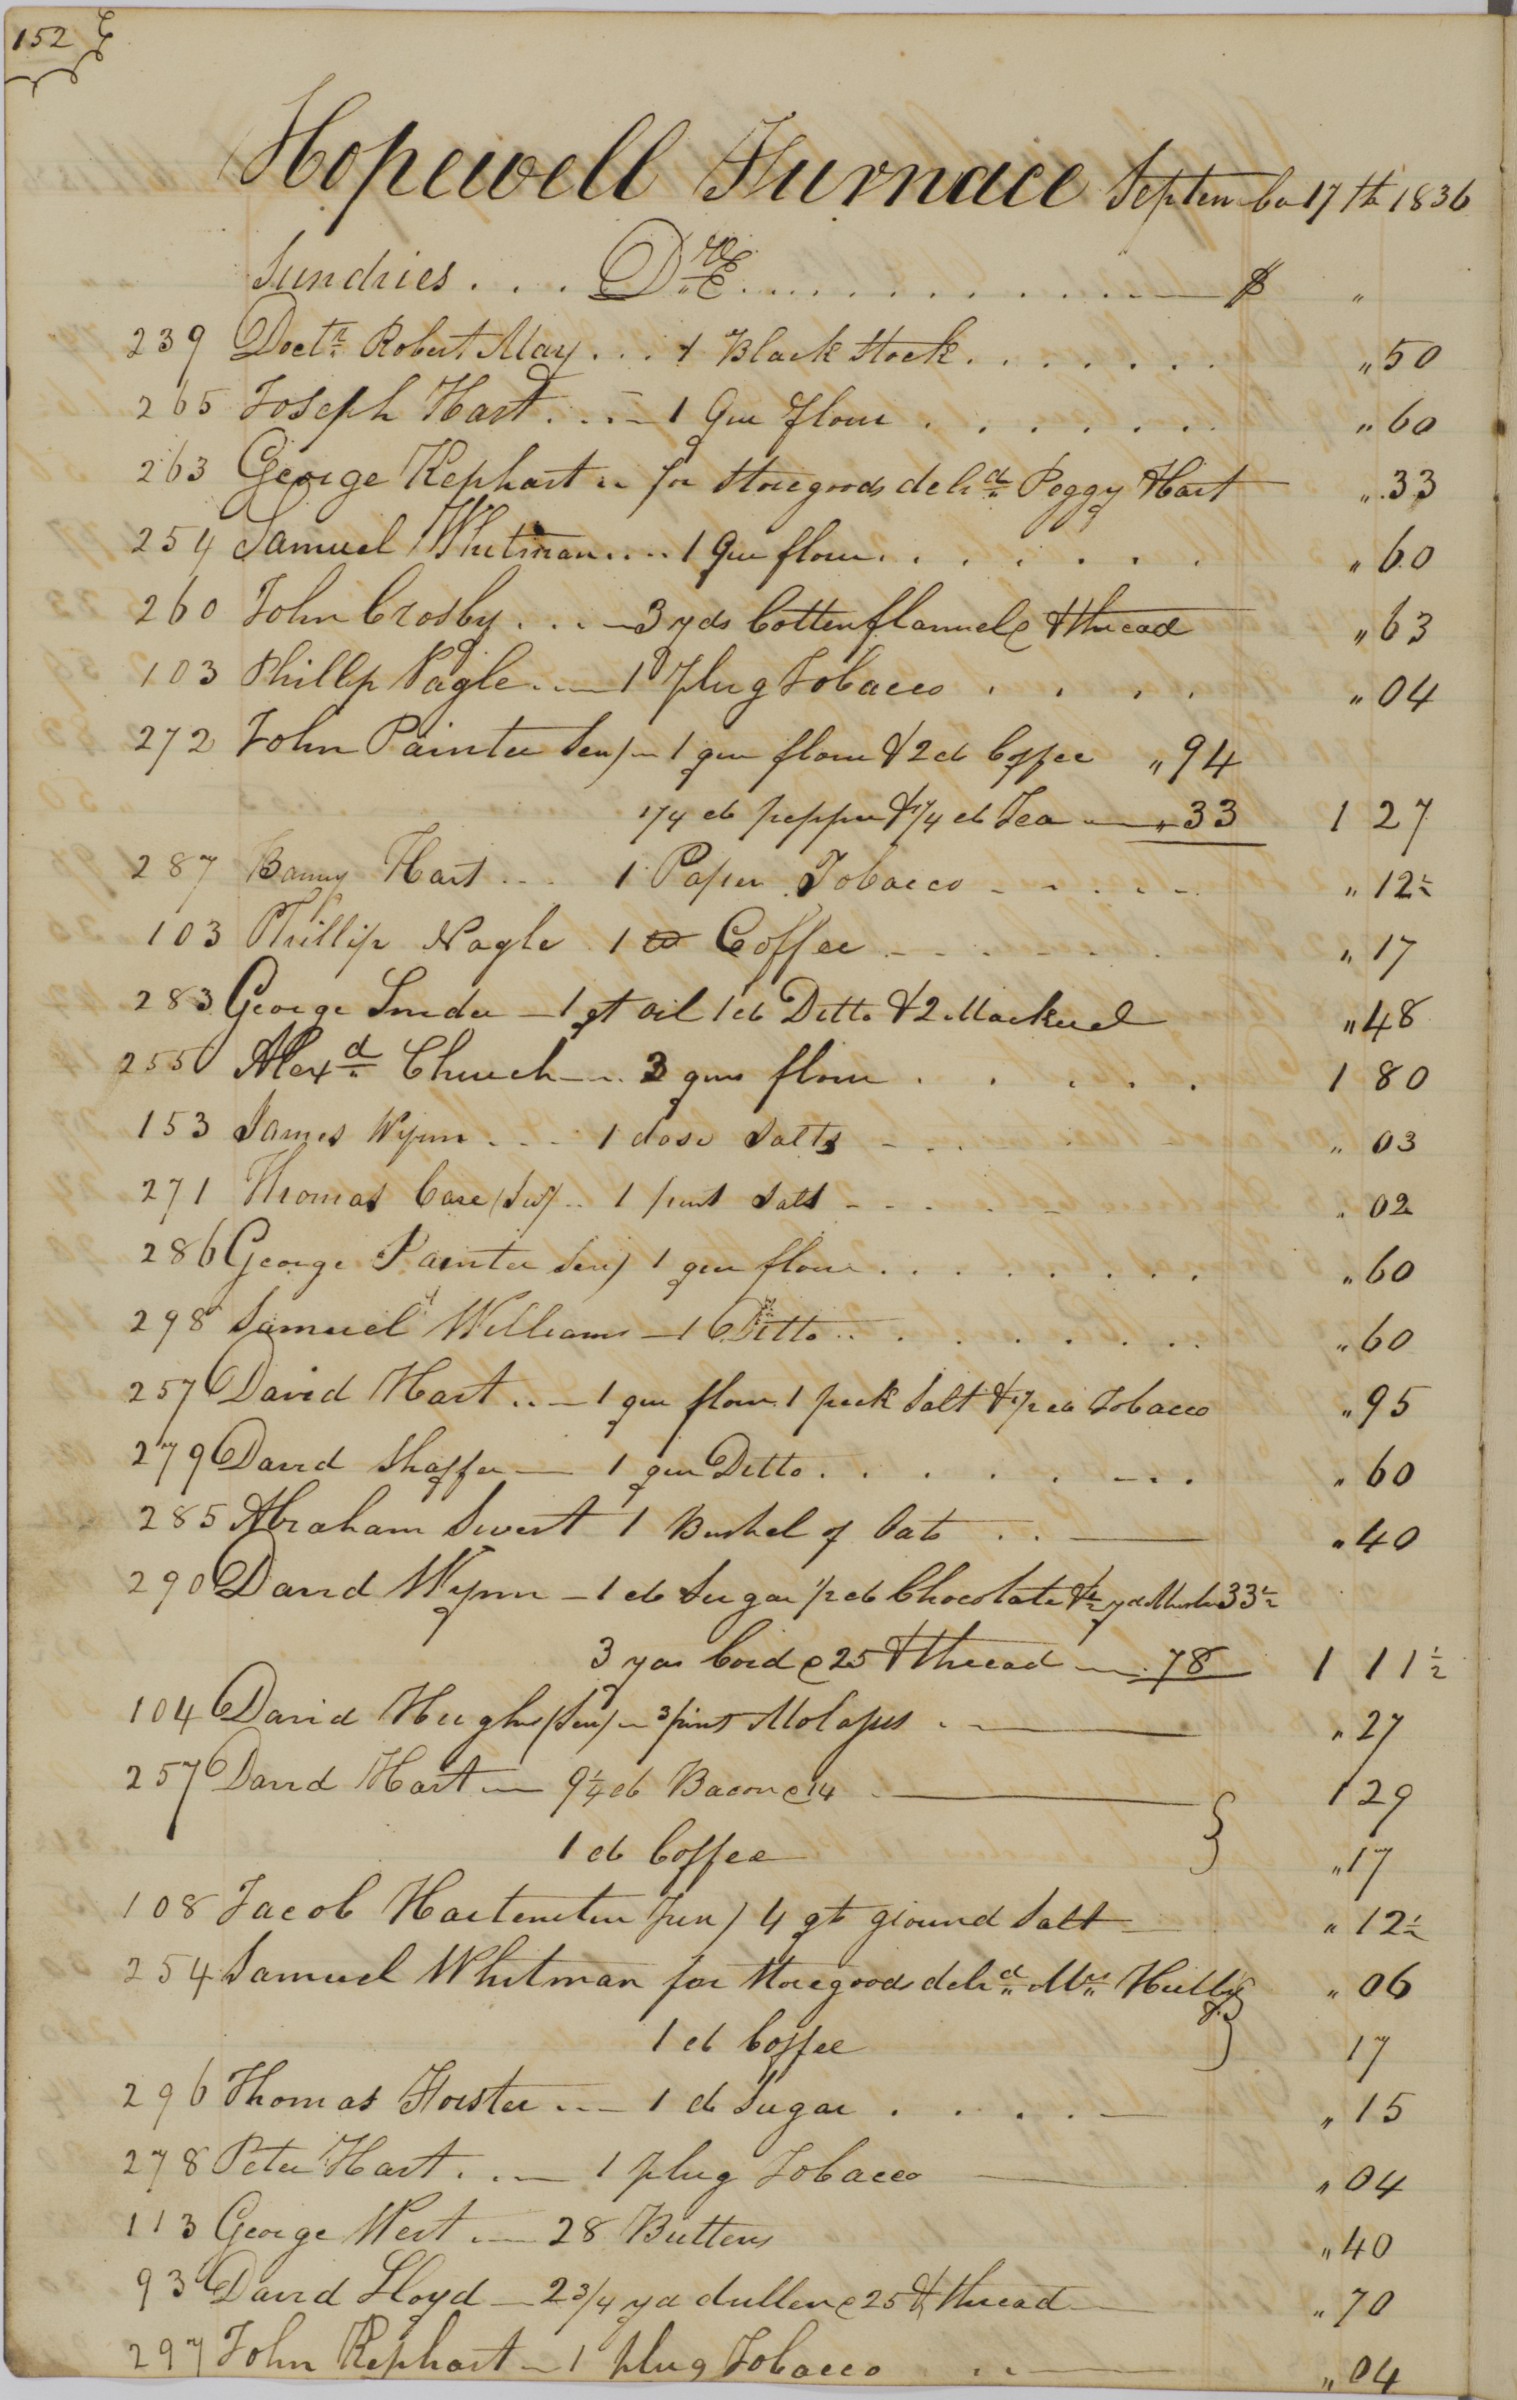 152
Hopewell Furnace September 17th 1836
Sundries . . . Dr . . . . . . . . . . $ "
239 Doctr Robert May . . . 1 Black Stock . . . . . . . " 50
265 Joseph Hart . . . — 1 Qur flour . . . . . . . " 60
263 George Kephart " for Storegoods deld Peggy Hart " 33
254 Samuel Whitman . . . . 1 Qur flour . . . . . . " 60
260 John Crosby . . . — 3 yds Cotten flannele & thread " 63
103 Phillip Nagle . . — 1 plug Tobacco . . . . " 04
272 John Painter Sen) — 1 qur flour & 2 lb Coffee " 94
1/4 lb pepper & 1/4 lb Tea — " 33 1 27
287 Hart . . . 1 Paper Tobacco - - . . - " 12½
103 Phillip Nagle 1 lb Coffee - - . - . - " 17
283 George Snider — 1 qt oil 1 lb Ditto & 2 Mackerel " 48
255 Alexd Church — . 3 qurs flour . . . . . 1 80
153 James Wynn . . . 1 dose Salts - . . " 03
271 Thomas Care (Sen) . . 1 pint Salt - - . . - " 02
286 George Painter Sen) 1 qur flour . . . . . . . " 60
298 Samuel Williams — 1 Ditto . . . . . . . . " 60
257 David Hart . . — 1 qur flour 1 peck Salt & 1/2 lb Tobacco " 95
279 David Shaffer — 1 qur Ditto . . . . . - - . " 60
285 Abraham Swert 1 Bushel of Oats . . — " 40
290 David Wynn — 1 lb Sugar 1/2 lb Chocolate & ½ yd 33½
3 yds Cord @ 25 & thread — . 78 1 11½
104 David Hughs (Sen) — 3 pints Molases . — " 27
257 David Hart — 9¼ lb Bacon @ 14 — 1 29
1 lb Coffee " 17
108 Jacob Hartenstin Jun) 4 qts ground Salt " 12½
254 Samuel Whitman for Storegoods deld Mrs " 06
1 lb Coffee 17
296 Thomas Forster . . — 1 lb Sugar . . . . — " 15
278 Peter Hart . . — 1 plug Tobacco — " 04
113 George West . — 28 Buttons " 40
93 David Lloyd — 2 3/4 yd @ 25 & thread — " 70
297 John Kephart — 1 plug Tobacco . . — " 04